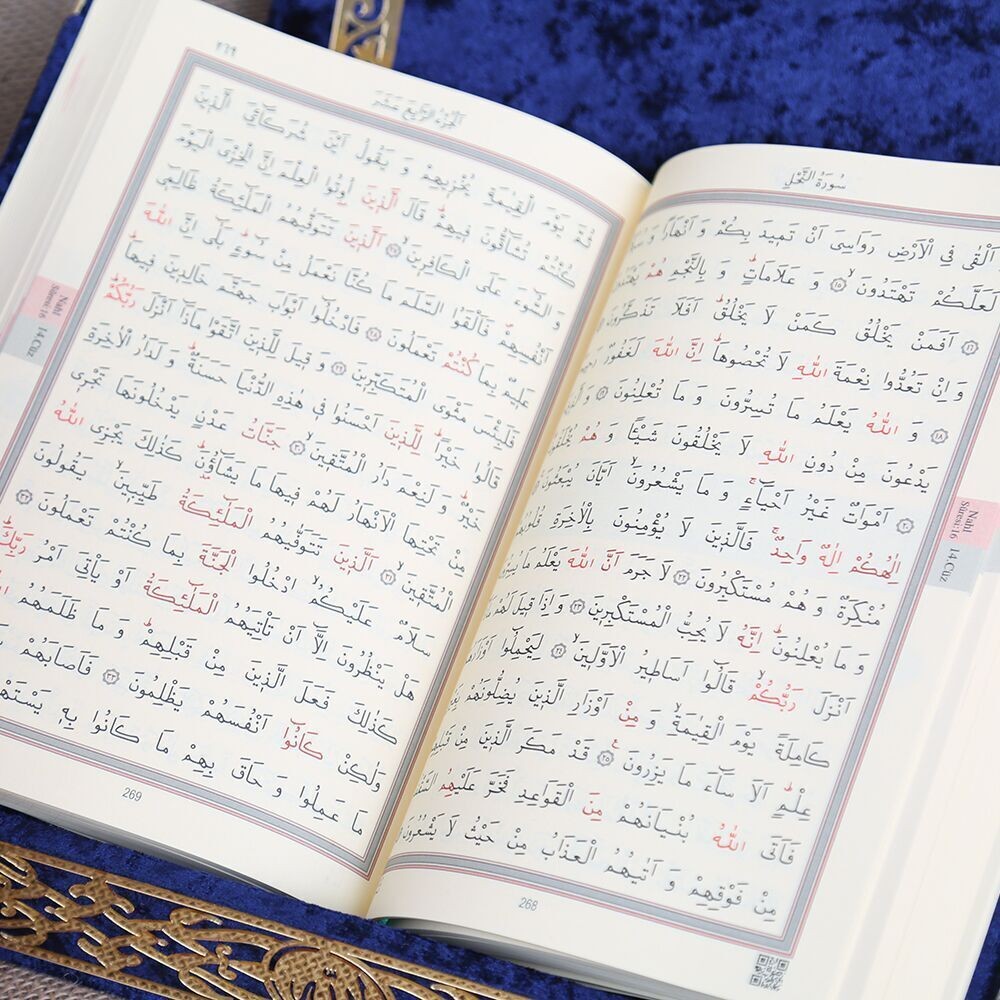 سُورَةُ النَّحْلِ
اَلْقٰى فِي الْاَرْضِ رَوَاسِيَ اَنْ تَم۪يدَ بِكُمْ وَ اَنْهَارًا وَ
لَعَلَّكُمْ تَهْتَدُونَۙ ﴿١٥﴾ وَ عَلَامَاتٍۜ وَ بِالنَّجْمِ هُمْ يَهْتَدُونَ
﴿١٦﴾ اَفَمَنْ يَخْلُقُ كَمَنْ لَا يَخْلُقُۜ اَفَلَا تَذَكَّرُونَ
وَ اِنْ تَعُدُّوا نِعْمَةَ اللّٰهِ لَا تُحْصُوهَاۜ اِنَّ اللّٰهَ لَغَفُورٌ رَح۪يمٌ
﴿١٨﴾ وَ اللّٰهُ يَعْلَمُ مَا تُسِرُّونَ وَ مَا تُعْلِنُونَ ﴿١٩﴾ وَ الَّذ۪ينَ
يَدْعُونَ مِنْ دُونِ اللّٰهِ لَا يَخْلُقُونَ شَيْـًٔا وَ هُمْ يُخْلَقُونَ
﴿٢٠﴾ اَمْوَاتٌ غَيْرُ اَحْيَٓاءٍۚ وَ مَا يَشْعُرُونَۙ اَيَّانَ يُبْعَثُونَ
اِلٰهُكُمْ اِلٰهٌ وَاحِدٌۚ فَالَّذ۪ينَ لَا يُؤْمِنُونَ بِالْاٰخِرَةِ قُلُوبُهُمْ
مُنْكِرَةٌ وَ هُمْ مُسْتَكْبِرُونَ ﴿٢٢﴾ لَا جَرَمَ اَنَّ اللّٰهَ يَعْلَمُ مَا يُسِرُّونَ
وَ مَا يُعْلِنُونَۜ اِنَّهُ لَا يُحِبُّ الْمُسْتَكْبِر۪ينَ ﴿٢٣﴾ وَ اِذَا ق۪يلَ لَهُمْ
اَنْزَلَ رَبُّكُمْۙ قَالُٓوا اَسَاط۪يرُ الْاَوَّل۪ينَۙ ﴿٢٤﴾ لِيَحْمِلُٓوا اَوْزَارَهُمْ
كَامِلَةً يَوْمَ الْقِيٰمَةِۙ وَ مِنْ اَوْزَارِ الَّذ۪ينَ يُضِلُّونَهُمْ بِغَيْرِ
عِلْمٍۜ اَلَا سَٓاءَ مَا يَزِرُونَ۟ ﴿٢٥﴾ قَدْ مَكَرَ الَّذ۪ينَ مِنْ قَبْلِهِمْ
فَاَتَى اللّٰهُ بُنْيَانَهُمْ مِنَ الْقَوَاعِدِ فَخَرَّ عَلَيْهِمُ السَّقْفُ
مِنْ فَوْقِهِمْ وَ اَتٰيهُمُ الْعَذَابُ مِنْ حَيْثُ لَا يَشْعُرُونَ
268
Nahl
Sûresi:16
14.Cüz
٢٦٩
اَلْجُزْءُ الرَّابِعَ عَشَرَ
ثُمَّ يَوْمَ الْقِيٰمَةِ يُخْز۪يهِمْ وَ يَقُولُ اَيْنَ شُرَكَٓاءِيَ الَّذ۪ينَ
كُنْتُمْ تُشَٓاقُّونَ ف۪يهِمْۜ قَالَ الَّذ۪ينَ اُو۫تُوا الْعِلْمَ اِنَّ الْخِزْيَ الْيَوْمَ
وَ السُّٓوءَ عَلَى الْكَافِر۪ينَۙ ﴿٢٧﴾ اَلَّذ۪ينَ تَتَوَفّٰيهُمُ الْمَلٰٓئِكَةُ ظَالِم۪ٓي
اَنْفُسِهِمْۖ فَاَلْقَوُا السَّلَمَ مَا كُنَّا نَعْمَلُ مِنْ سُٓوءٍۜ بَلٰٓى اِنَّ اللّٰهَ
عَل۪يمٌ بِمَا كُنْتُمْ تَعْمَلُونَ ﴿٢٨﴾ فَادْخُلُٓوا اَبْوَابَ جَهَنَّمَ خَالِد۪ينَ ف۪يهَاۜ
فَلَبِئْسَ مَثْوَى الْمُتَكَبِّر۪ينَ ﴿٢٩﴾ وَ ق۪يلَ لِلَّذ۪ينَ اتَّقَوْا مَاذَٓا اَنْزَلَ رَبُّكُمْۜ
قَالُوا خَيْرًاۜ لِلَّذ۪ينَ اَحْسَنُوا ف۪ي هٰذِهِ الدُّنْيَا حَسَنَةٌۜ وَ لَدَارُ الْاٰخِرَةِ
خَيْرٌۜ وَ لَنِعْمَ دَارُ الْمُتَّق۪ينَۙ ﴿٣٠﴾ جَنَّاتُ عَدْنٍ يَدْخُلُونَهَا تَجْر۪ي
مِنْ تَحْتِهَا الْاَنْهَارُ لَهُمْ ف۪يهَا مَا يَشَٓاؤُ۫نَۜ كَذٰلِكَ يَجْزِي اللّٰهُ
الْمُتَّق۪ينَۙ ﴿٣١﴾ اَلَّذ۪ينَ تَتَوَفّٰيهُمُ الْمَلٰٓئِكَةُ طَيِّب۪ينَۙ يَقُولُونَ
سَلَامٌ عَلَيْكُمُۙ ادْخُلُوا الْجَنَّةَ بِمَا كُنْتُمْ تَعْمَلُونَ ﴿٣٢﴾
هَلْ يَنْظُرُونَ اِلَّٓا اَنْ تَأْتِيَهُمُ الْمَلٰٓئِكَةُ اَوْ يَأْتِيَ اَمْرُ رَبِّكَۜ
كَذٰلِكَ فَعَلَ الَّذ۪ينَ مِنْ قَبْلِهِمْۜ وَ مَا ظَلَمَهُمُ
وَلٰكِنْ كَانُٓوا اَنْفُسَهُمْ يَظْلِمُونَ ﴿٣٣﴾ فَاَصَابَهُمْ
مَا عَمِلُوا وَ حَاقَ بِهِمْ مَا كَانُوا بِه۪ يَسْتَهْ
269
Nahl
Sûresi:16
14.Cüz